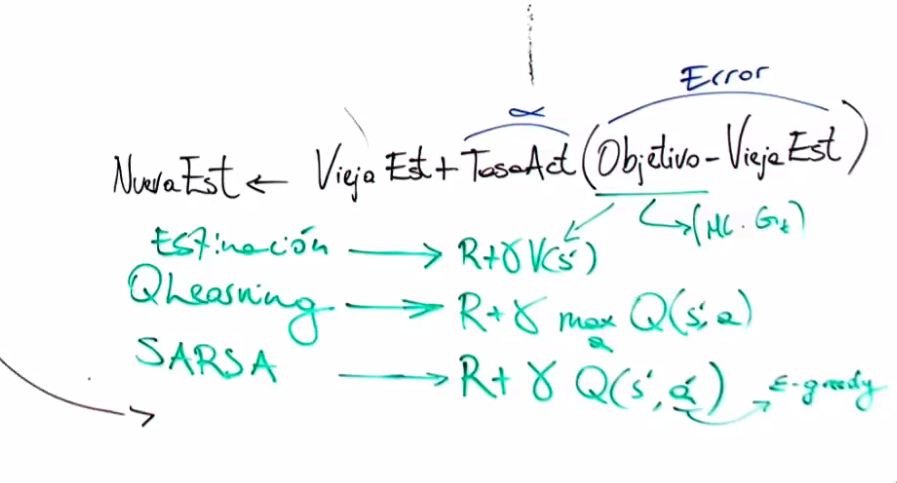 Error
α
NuevaEst ← Vieja Est + TasaAct (Objetivo - Vieja Est)
(MC. Gt)
Estimación → R + γ V(s')
QLearning → R + γ max Q(s', a)
a
SARSA → R + γ Q(s', a') → ε-greedy